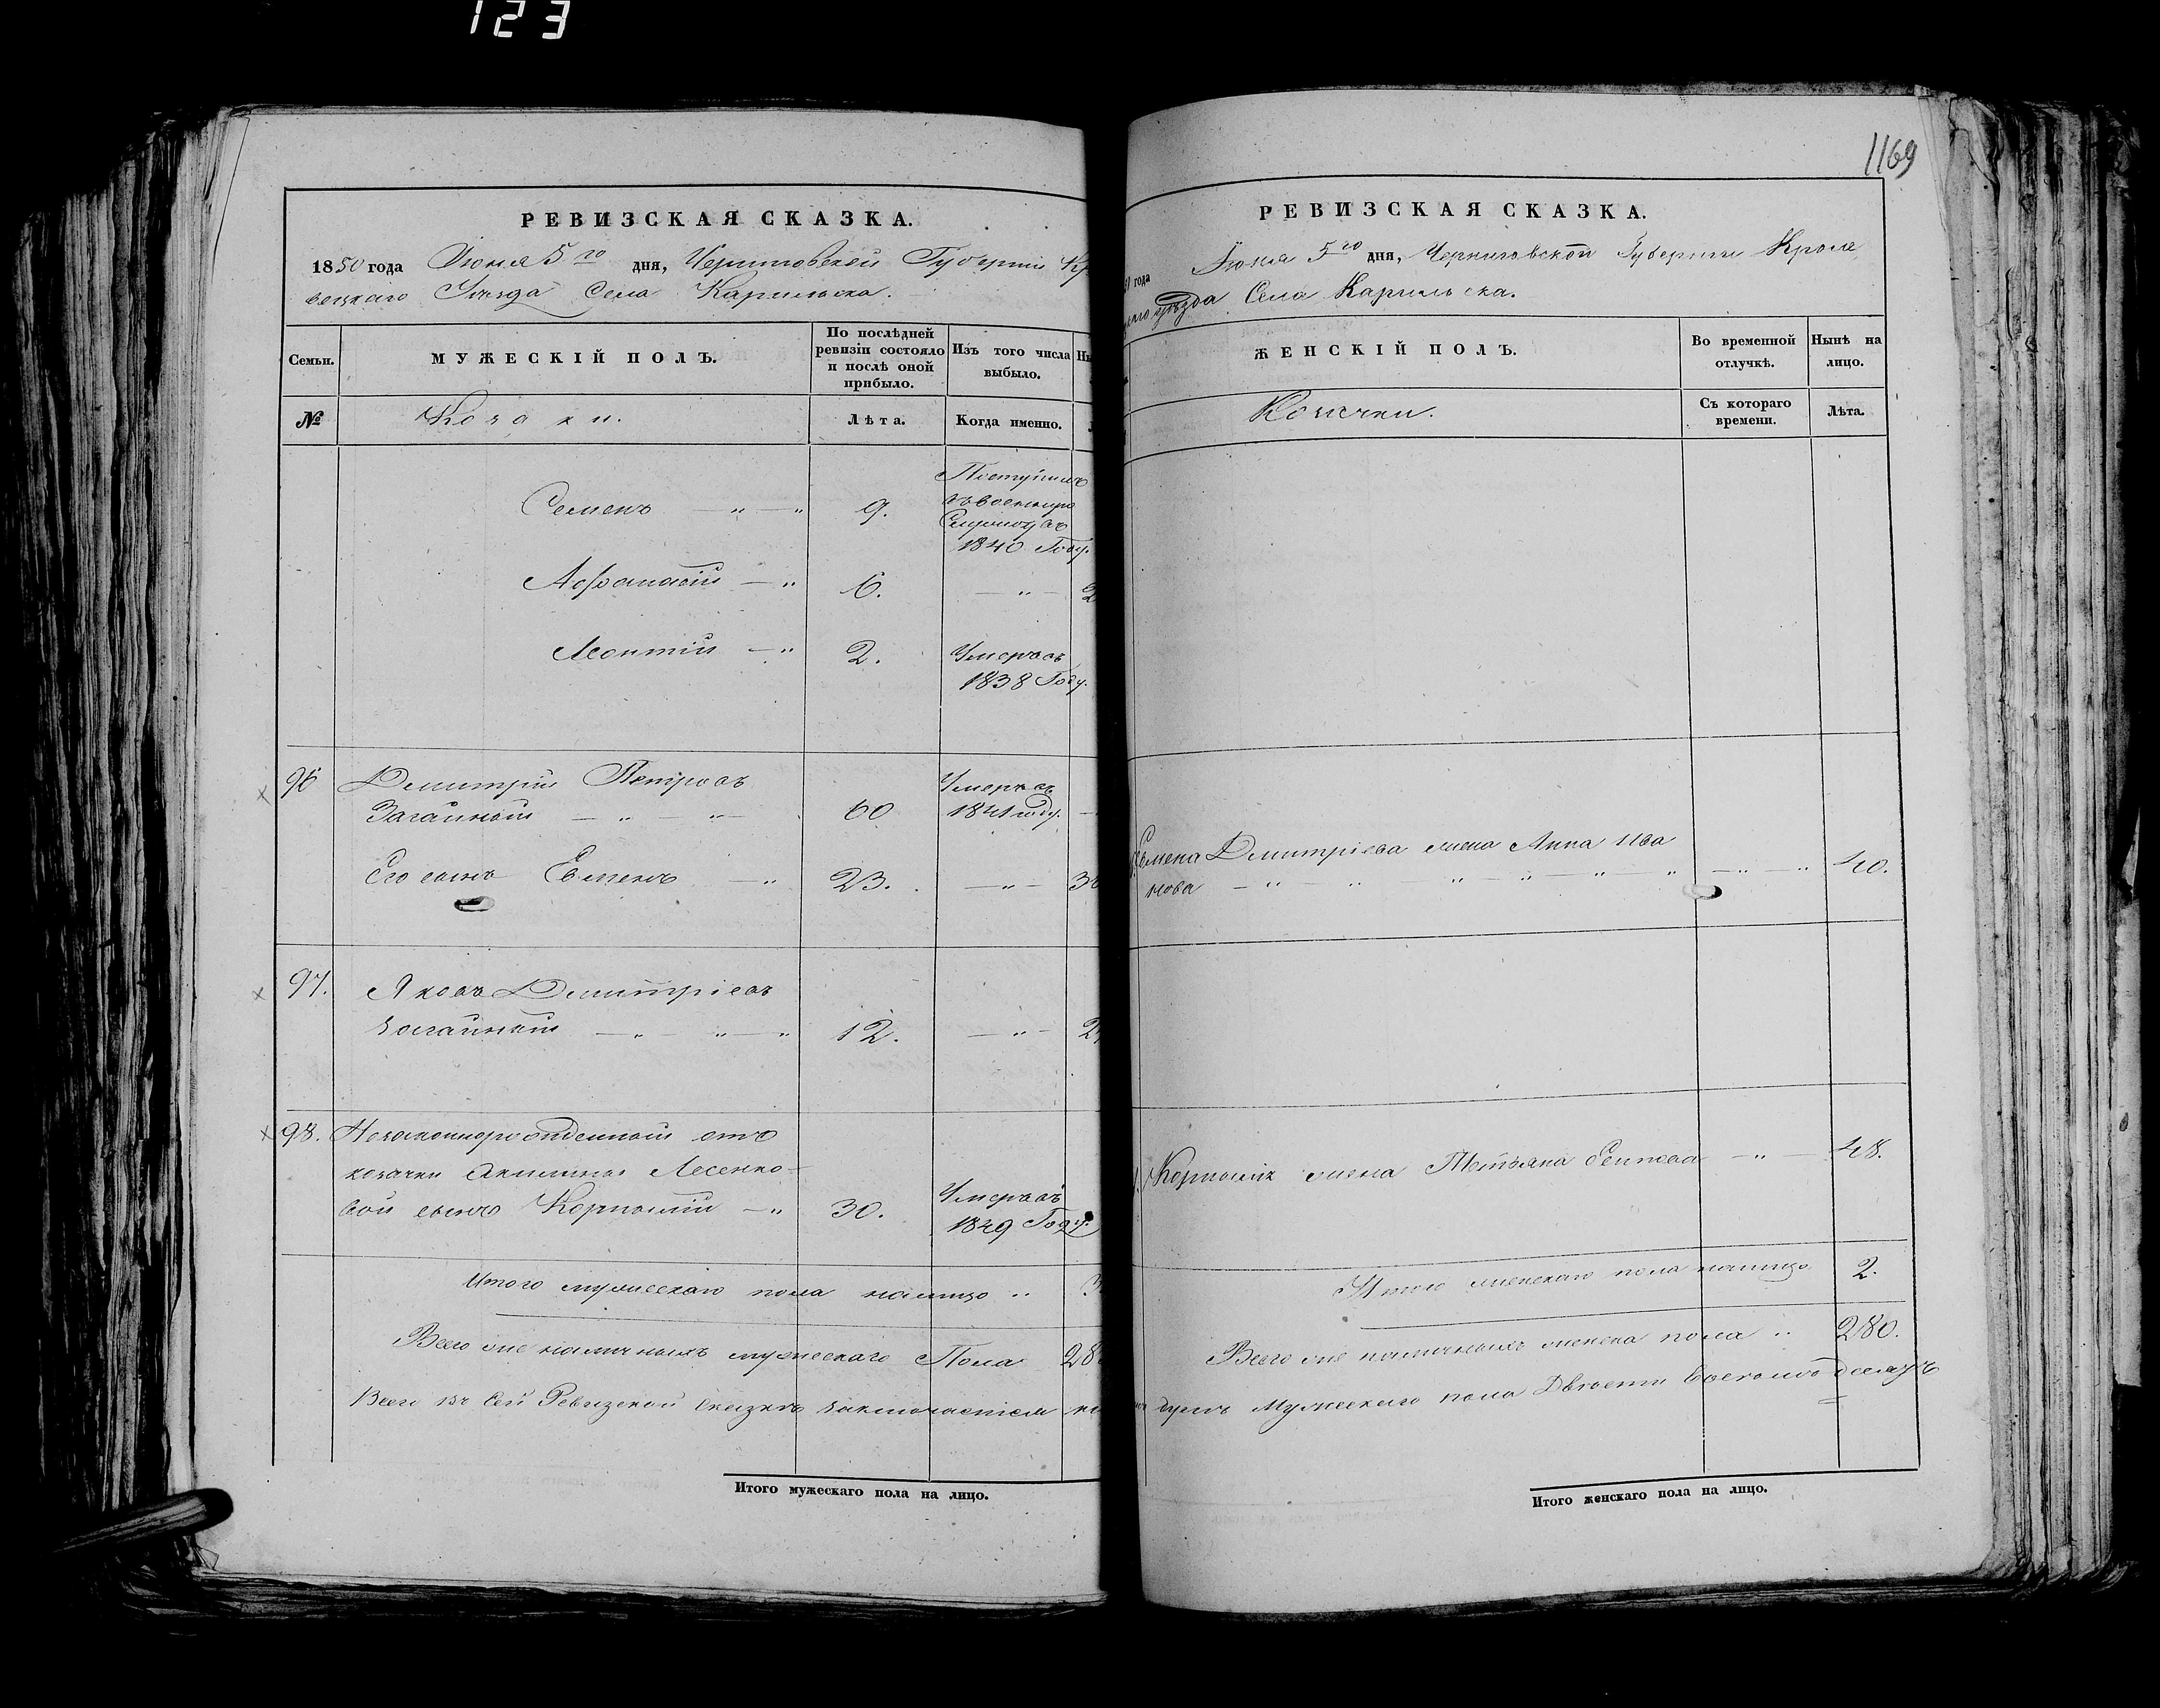 123
РЕВИЗСКАЯ СКАЗКА.
1850 года Июня 5го дня, Черниговской Губерніи Кр
вецкаго Уезда Села Карильска.
Семьи.
МУЖЕСКІЙ ПОЛЪ.
По послѣдней ревизіи состояло и послѣ оной прибыло.
Изъ того числа выбыло.
№
Козаки.
Лѣта.
Когда именно.
Семенъ — " — " 9. Поступилъ
въ военную
Службу въ
1840 Году.
Афанасій — " 6. — " — 2
Леонтій — " 2. Умеръ въ
1838 Году.
96 Дмитрій Петровъ Умеръ въ
Загайный — " " — 60 1841 году. —
Его сынъ Евменъ — " 23. — " — 3
97. Яковъ Дмитріевъ
Загайный — " " — " 12. — " — 2
98. Незаконнорожденный отъ
козачки Акилины Лесенко-
вой сынъ Корнилій — " 30. Умеръ въ
1849 Году.
Итого мужескаго пола налицо " 3
Всего же наличныхъ мужескаго Пола 28
Всего въ Сей Ревизской Сказкѣ заключается на
Итого мужескаго пола на лицо.
1169
РЕВИЗСКАЯ СКАЗКА.
года Іюня 5го дня, Черниговской Губерніи Кроле
уѣзда Села Карильска.
ЖЕНСКІЙ ПОЛЪ.
Во временной отлучкѣ.
Нынѣ на лицо.
Козачки.
Съ котораго времени.
Лѣта.
Евмена Дмитріева жена Анна Ива
нова — " — " — " — " — " — " — " — " 40.
Корнилія жена Татьяна — " — 48.
Итого женскаго пола налицо 2.
Всего же наличныхъ женска пола " 280.
душъ Мужескаго пола Двѣсти Восемьдесятъ
Итого женскаго пола на лицо.